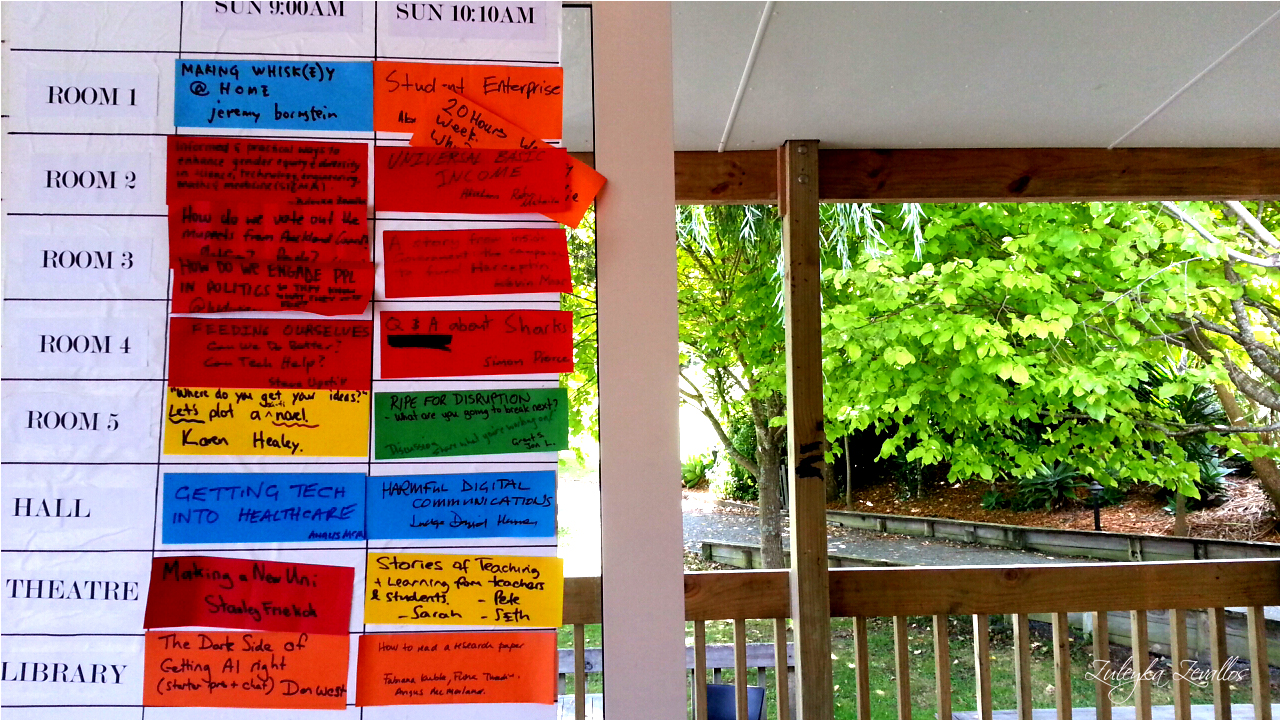 SUN 9:00AM
SUN 10:10AM
ROOM 1
MAKING WHISK(E)Y
@ HOME
jeremy bornstein
Student Enterprise
20 Hours
Week
ROOM 2
Informed & practical ways to
enhance gender equity & diversity
in science, technology, engineering,
UNIVERSAL BASIC
INCOME
ROOM 3
How do we vote out the
muppets from Auckland Council
HOW DO WE ENGAGE PPL
IN POLITICS SO THEY
A story from inside
ROOM 4
FEEDING OURSELVES
Can We Do Better?
Can Tech Help?
Q & A about Sharks
Simon Pierce
ROOM 5
"Where do you get your ideas?"
Lets plot a novel
Karen Healey.
RIPE FOR DISRUPTION
- What are you going to break next?
HALL
GETTING TECH
INTO HEALTHCARE
HARMFUL DIGITAL
COMMUNICATIONS
Judge David
THEATRE
Making a New Uni
Stanley Frielick
Stories of Teaching
+ Learning from teachers
& students - Pete
- Sarah - Seth
LIBRARY
The Dark Side of
Getting AI right
(starter pres + chat) Don West
How to read a research paper
Zuleyka Zevallos